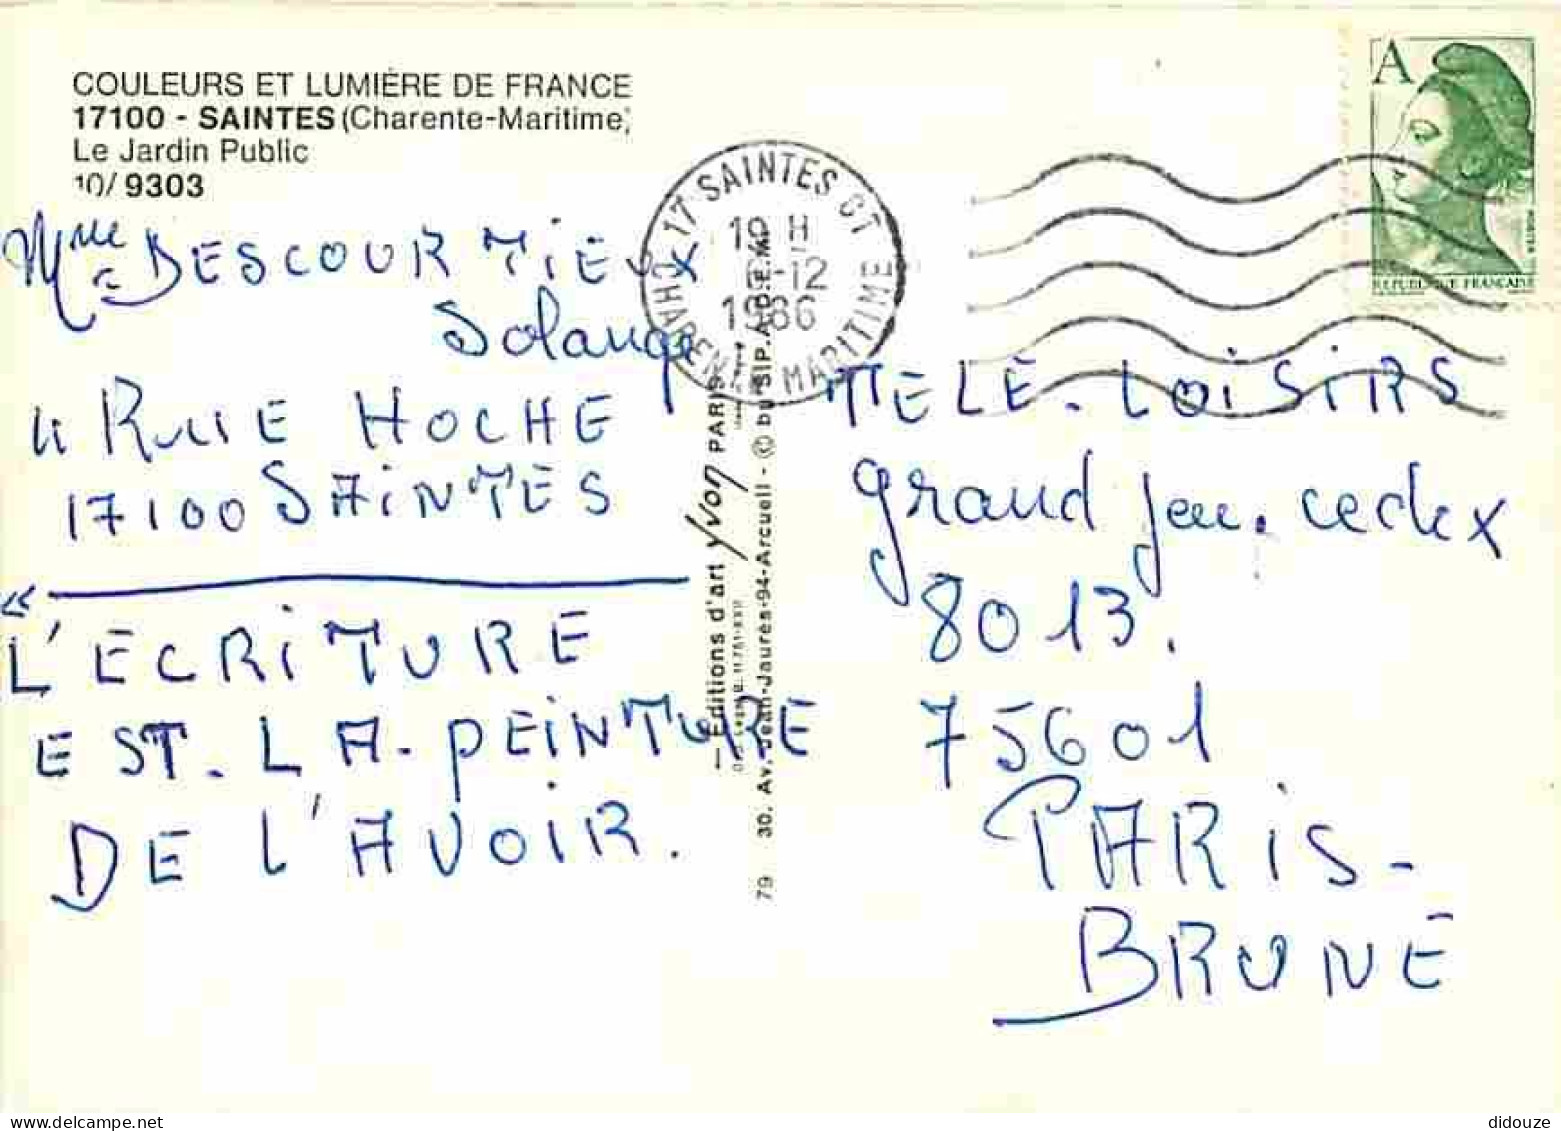 COULEURS ET LUMIÈRE DE FRANCE
17100 - SAINTES (Charente-Maritime)
Le Jardin Public
10/ 9303
Mme DESCOURTIEUX
Solange
4 RUE HOCHE
17100 SAINTES
«
L'ECRITURE
EST. LA. PEINTURE
DE L'AVOIR.
17 SAINTES CT
CHARENTE MARITIME
19 H
-12
1986
— Editions d'art Yvon PARIS
30, Av. Jean-Jaurès-94-Arcueil - © by S.P.A.D.E.M.
79
A
REPUBLIQUE FRANÇAISE
TELE. LOISIRS
grand jeu. cedex
8013.
75601
PARIS-
BRUNE
delcampe.net
didouze